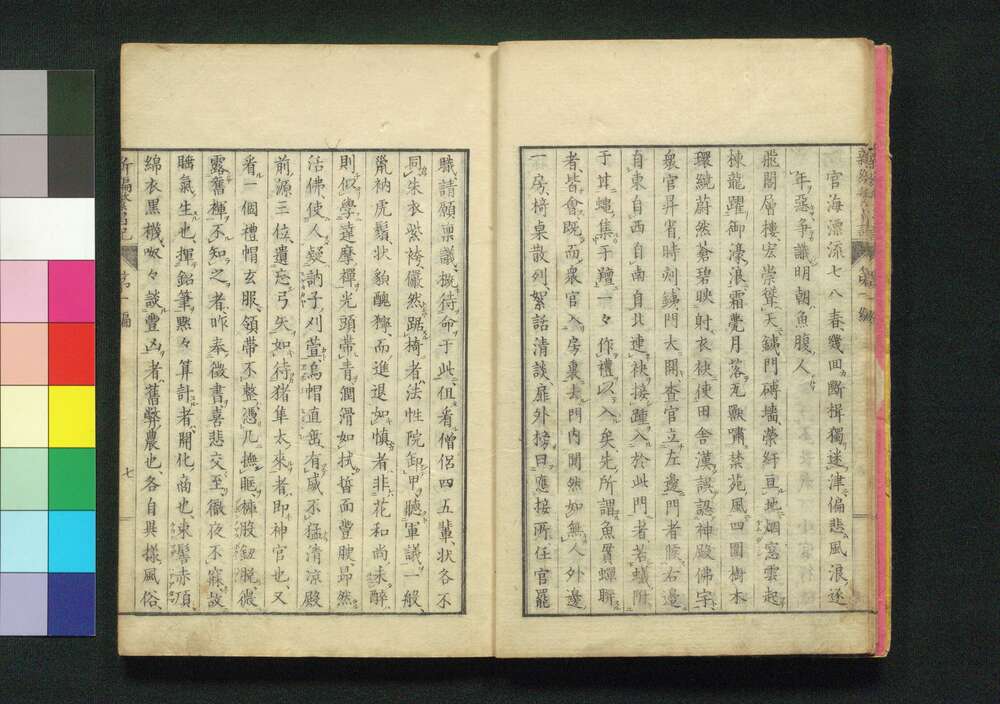 官海漂流七八春、幾回斷楫獨迷津、偏悲風浪遂
年惡、争識明朝魚腹人
飛閣層樓宏崇聳天、鉄門磚墻縈紆亘地、烟窓雲起
棟龍躍、御濠浪、霜甍月落瓦獸嘯、禁苑風、四圍樹木
環繞蔚然、蒼碧映射、衣袂使田舎漢誤認神殿佛宇
衆官昇省時刻、鉄門大開、査官立左邊、門者膝右邊
自東自西自南自北連袂接踵入於此門者、若蟻附
于其蟻集于羶、一々作禮以入矣、先所謂魚貫蟬聯
者、皆會既而衆官入房裏去、門内閴然如無人、外邊
一房、椅桌散列、絮話清談、扉外榜曰應接所、任官罷
職請願禀議、擬待命于此、但看僧侶四五輩、状各不
同、朱衣紫袴、儼然踞椅者、法性院卸甲聴軍議一般、
氈衲虎鬚、状貌醜獰而進退如慎者、非花和尚未醉、
則似學達摩禪、光頭帶青潤滑如拭、皙面豊腴昻然
活佛、使人疑訥子、刈萱、烏帽直裳有威不猛、清涼殿
前源三位遺忘弓矢、如待猪隼太來者、即神官也、又
看一個禮帽玄服、領帶不整、憑几撫眶、褲股鈕脱微
露舊褌不知之者、昨奉徴書喜悲交至、徹夜不寐、故
驕氣生也、揮鉛筆點々算計者、開化商也、束髻赤頂、
綿衣黒襪、呶々談豊凶者、舊弊農也、各自異様風俗
第一編
七